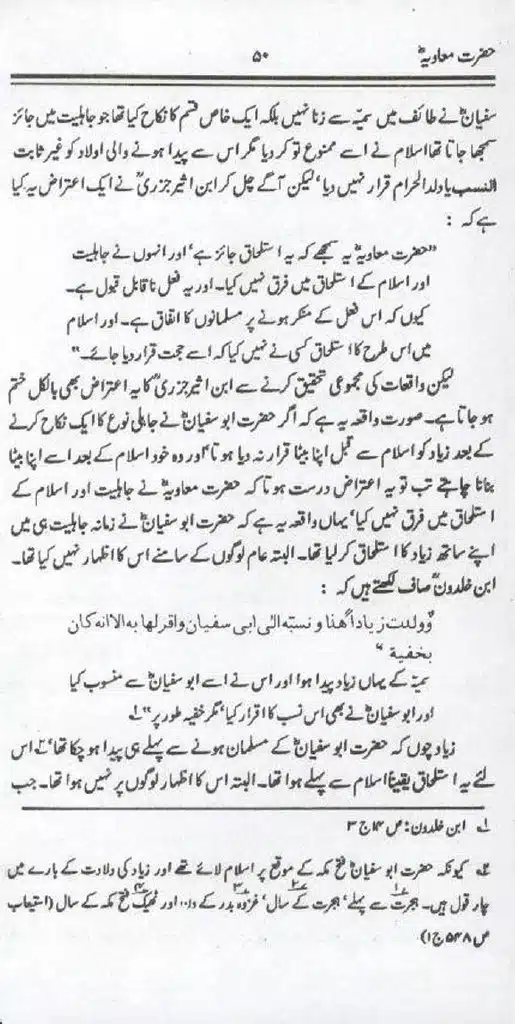 حضرت معاویہؓ ۵۰
سفیانؓ نے طائف میں سمیّہ سے زنا نہیں بلکہ ایک خاص قسم کا نکاح کیا تھا جو جاہلیت میں جائز
سمجھا جاتا تھا اسلام نے اسے ممنوع تو کر دیا مگر اس سے پیدا ہونے والی اولاد کو غیر ثابت
النسب یا ولد الحرام قرار نہیں دیا' لیکن آگے چل کر ابن اثیر جزریؒ نے ایک اعتراض یہ کیا
ہے کہ :
"حضرت معاویہؓ یہ سمجھے کہ یہ استلحاق جائز ہے' اور انہوں نے جاہلیت
اور اسلام کے استلحاق میں فرق نہیں کیا۔ اور یہ فعل ناقابل قبول ہے۔
کیوں کہ اس فعل کے منکر ہونے پر مسلمانوں کا اتفاق ہے۔ اور اسلام
میں اس طرح کا استلحاق کسی نے نہیں کیا کہ اسے حجت قرار دیا جائے۔"
لیکن واقعات کی مجموعی تحقیق کرنے سے ابن اثیر جزریؒ کا یہ اعتراض بھی بالکل ختم
ہو جاتا ہے۔ صورت واقعہ یہ ہے کہ اگر حضرت ابو سفیانؓ نے جاہلی نوع کا ایک نکاح کرنے
کے بعد زیاد کو اسلام سے قبل اپنا بیٹا قرار نہ دیا ہوتا' اور وہ خود اسلام کے بعد اسے اپنا بیٹا
بنانا چاہتے تب تو یہ اعتراض درست ہوتا کہ حضرت معاویہؓ نے جاہلیت اور اسلام کے
استلحاق میں فرق نہیں کیا' یہاں واقعہ یہ ہے کہ حضرت ابو سفیانؓ نے زمانہ جاہلیت ہی میں
اپنے ساتھ زیاد کا استلحاق کر لیا تھا۔ البتہ عام لوگوں کے سامنے اس کا اظہار نہیں کیا تھا۔
ابن خلدونؒ صاف لکھتے ہیں کہ :
"وولدت زیاداً هذا ونسبته الی ابی سفیان واقرلها به الاانه کان
بخفیة"
سمیّہ کے یہاں زیاد پیدا ہوا اور اس نے اسے ابو سفیانؓ سے منسوب کیا
اور ابو سفیانؓ نے بھی اس نسب کا اقرار کیا' مگر خفیہ طور پر" ۱؎
زیاد چوں کہ حضرت ابو سفیانؓ کے مسلمان ہونے سے پہلے ہی پیدا ہو چکا تھا' ۲؎ اس
لئے یہ استلحاق یقیناً اسلام سے پہلے ہوا تھا۔ البتہ اس کا اظہار لوگوں پر نہیں ہوا تھا۔ جب
۱؎ ابن خلدون : ص ۱۴ ج ۳
۲؎ کیونکہ حضرت ابو سفیانؓ فتح مکہ کے موقع پر اسلام لائے تھے اور زیاد کی ولادت کے بارے میں
چار قول ہیں۔ ہجرت سے پہلے' ہجرت کے سال' غزوہ بدر کے دن اور ٹھیک فتح مکہ کے سال (استیعاب
ص ۵۴۸ ج ۱)